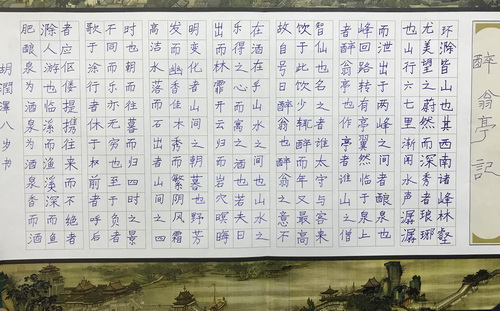 醉翁亭記
环滁皆山也其西南诸峰林壑
尤美望之蔚然而深秀者琅琊
也山行六七里渐闻水声潺潺
而泄出于两峰之间者酿泉也
峰回路转有亭翼然临于泉上
者醉翁亭也作亭者谁山之僧
智仙也名之者谁太守与客来
饮于此饮少辄醉而年又最高
故自号曰醉翁也醉翁之意不
在酒在乎山水之间也山水之
乐得之心而寓之酒也若夫日
出而林霏开云归而岩穴暝晦
明变化者山间之朝暮也野芳
发而幽香佳木秀而繁阴风霜
高洁水落而石出者山间之四
时也朝而往暮而归四时之景
不同而乐亦无穷也至于负者
歌于途行者休于树前者呼后
者应伛偻提携往来而不绝者
滁人游也临溪而渔溪深而鱼
肥酿泉为酒泉香而酒
胡潤澤八岁书